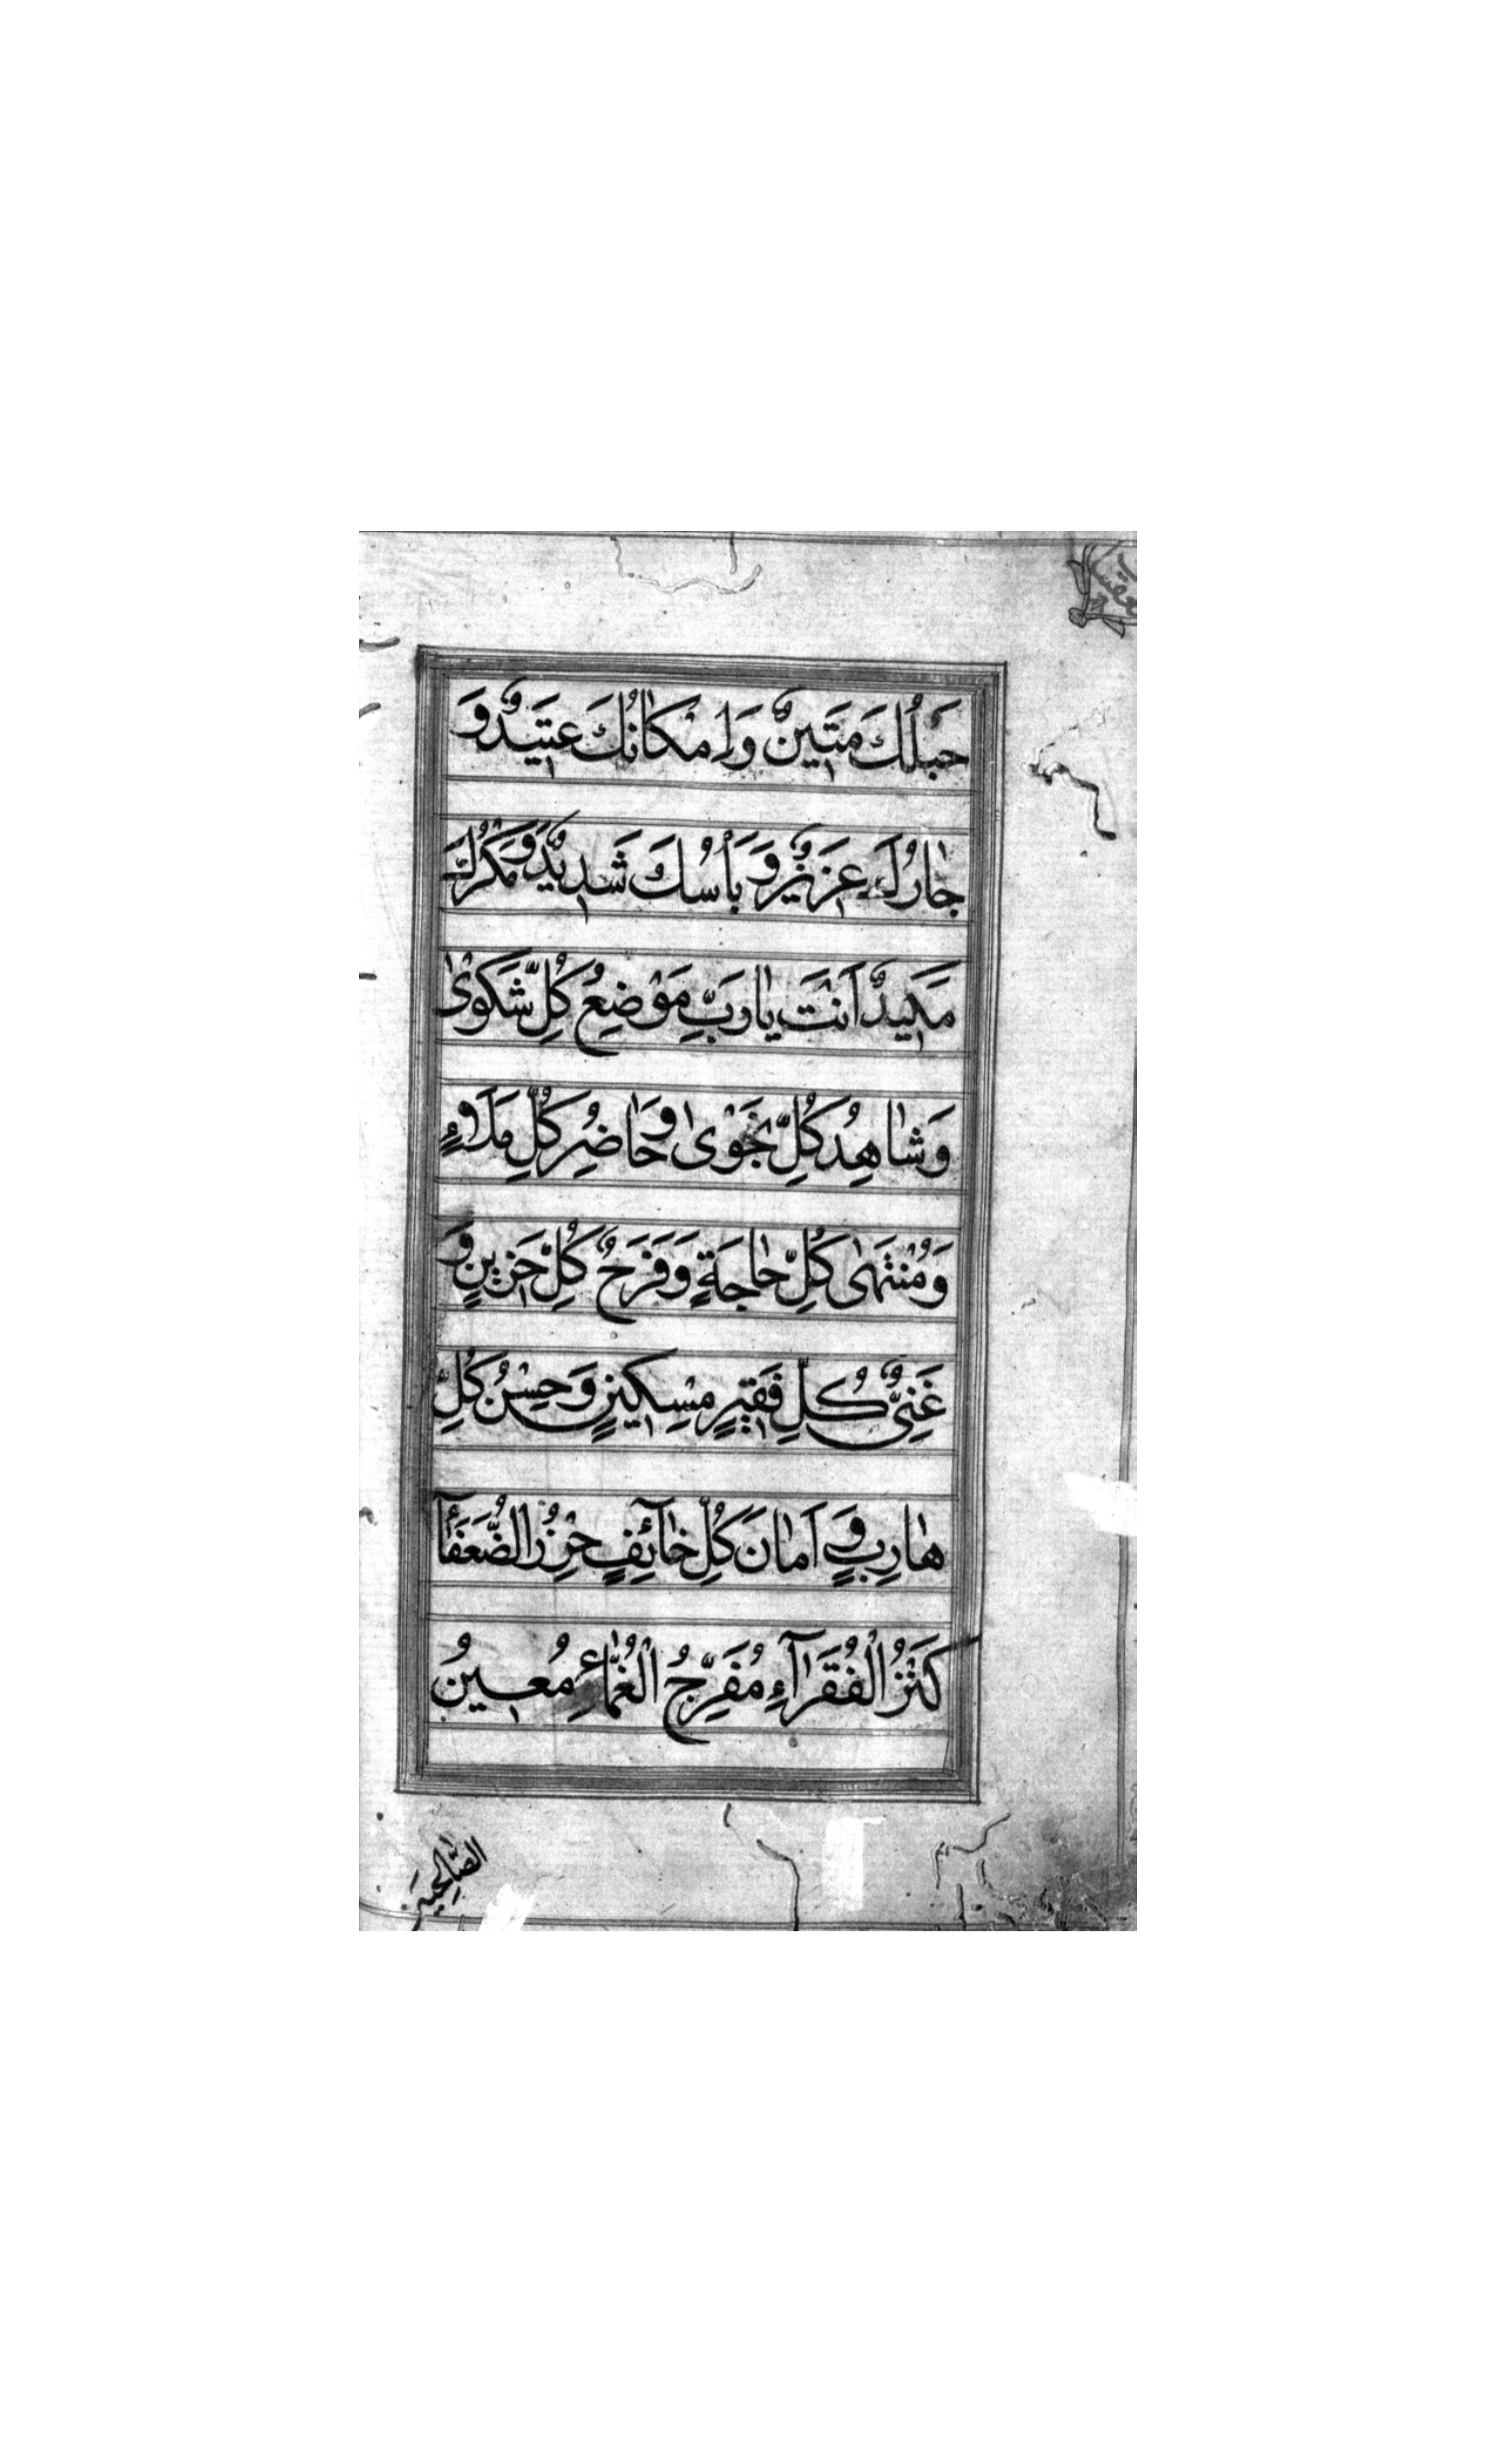 حَبْلُكَ مَتِينٌ وَاِمْكَانُكَ عَتِيدٌ وَ
جَارُكَ عَزِيزٌ وَبَأْسُكَ شَدِيدٌ وَمَكْرُكَ
مَكِيدٌ اَنْتَ يَارَبِّ مَوْضِعُ كُلِّ شَكْوٰى
وَشَاهِدُ كُلِّ نَجْوٰى وَحَاضِرُ كُلِّ مَلَاءٍ
وَمُنْتَهٰى كُلِّ حَاجَةٍ وَفَرَحُ كُلِّ حَزِينٍ وَ
غَنِيُّ كُلِّ فَقِيرٍ مِسْكِينٍ وَحِصْنُ كُلِّ
هَارِبٍ وَ اَمَانَ كُلِّ خَآئِفٍ حِرْزُ الضُّعَفَآءِ
كَنْزُ الْفُقَرَآءِ مُفَرِّجُ الْغُمَّاءِ مُعِينُ
الصَّالِحِينَ